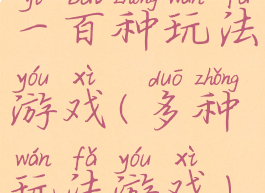 yī bǎi zhǒng wán fǎ
一百种玩法
yóu xì duō zhǒng
游戏(多种
wán fǎ yóu xì
玩法游戏)